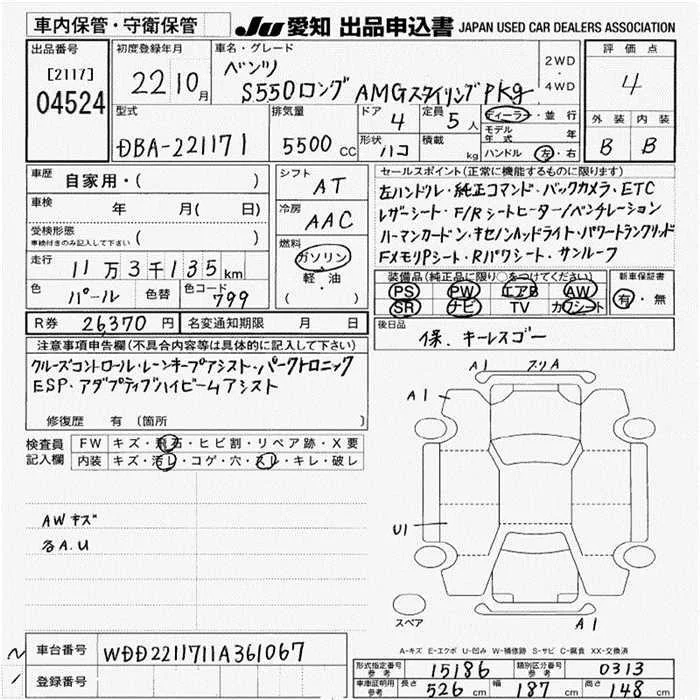 車内保管・守衛保管
JU 愛知 出品申込書 JAPAN USED CAR DEALERS ASSOCIATION
出品番号
[2117]
04524
初度登録年月
22 10月
車名・グレード
ベンツ
S550ロング AMGスタイリングPkg
2WD
・
4WD
評価点
4
外装 内装
B B
型式
DBA-221171
排気量
5500 CC
ドア
4
定員
5人
形状
ハコ
積載
kg
ディーラー・並行
モデル年式 年
ハンドル 左・右
車歴 自家用・( )
車検 年 月( 日)
受検形態
車検付きのみ記入して下さい ( )
走行 11万3千135km
色 パール 色替 色コード 799
シフト
AT
冷房
AAC
燃料
ガソリン
軽・油
( )
R券 26,370円
名変通知期限 月 日
セールスポイント(正常に機能するものに限ります)
左ハンドル・純正コマンド・バックカメラ・ETC
レザーシート・F/Rシートヒーター/ベンチレーション
ハーマンカードン・キセノンヘッドライト・パワートランクリッド
FメモリPシート・RパワPシート・サンルーフ
装備品(純正品に限り○をつけてください)
PS PW エアB AW
SR ナビ TV カワシート
新車保証書
有・無
後日品
保、キーレスゴー
注意事項申告欄(不具合内容等は具体的に記入して下さい)
クルーズコントロール・レーンキープアシスト・パークトロニック
ESP・アダプティブハイビームアシスト
修復歴 有 〔箇所 〕
検査員
記入欄
FW キズ・飛石・ヒビ割・リペア跡・X要
内装 キズ・汚レ・コゲ・穴・スレ・キレ・破レ
AWキズ
各A.U
A1
A1
U1
A1
スペア
A-キズ E-エクボ U-凹み W-補修跡 S-サビ C-腐食 XX-交換済
車台番号 WDD2211711A361067
登録番号
形式指定番号
参考
15186
類別区分番号
参考
0313
車庫証明用
参考
長さ 526 cm 幅 187 cm 高さ 148 cm